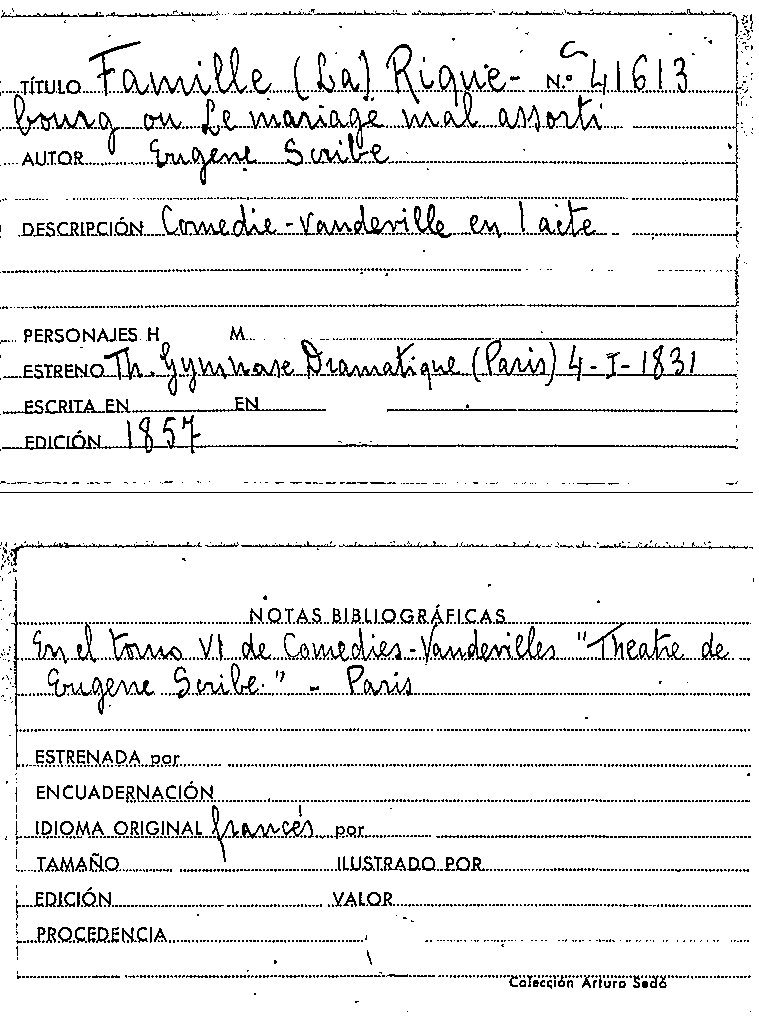 TÍTULO Famille (La) Rique- N.º C 41613
bourg ou Le mariage mal assorti
AUTOR Eugene Scribe
DESCRIPCIÓN Comedie-Vaudeville en 1 acte
PERSONAJES H M
ESTRENO Th. Gymnase Dramatique (Paris) 4-I-1831
ESCRITA EN EN
EDICIÓN 1857
NOTAS BIBLIOGRÁFICAS
En el tomo VI de Comedies-Vaudevilles "Theatre de
Eugene Scribe." - Paris
ESTRENADA por
ENCUADERNACIÓN
IDIOMA ORIGINAL francés por
TAMAÑO ILUSTRADO POR
EDICIÓN VALOR
PROCEDENCIA
Colección Arturo Sedó